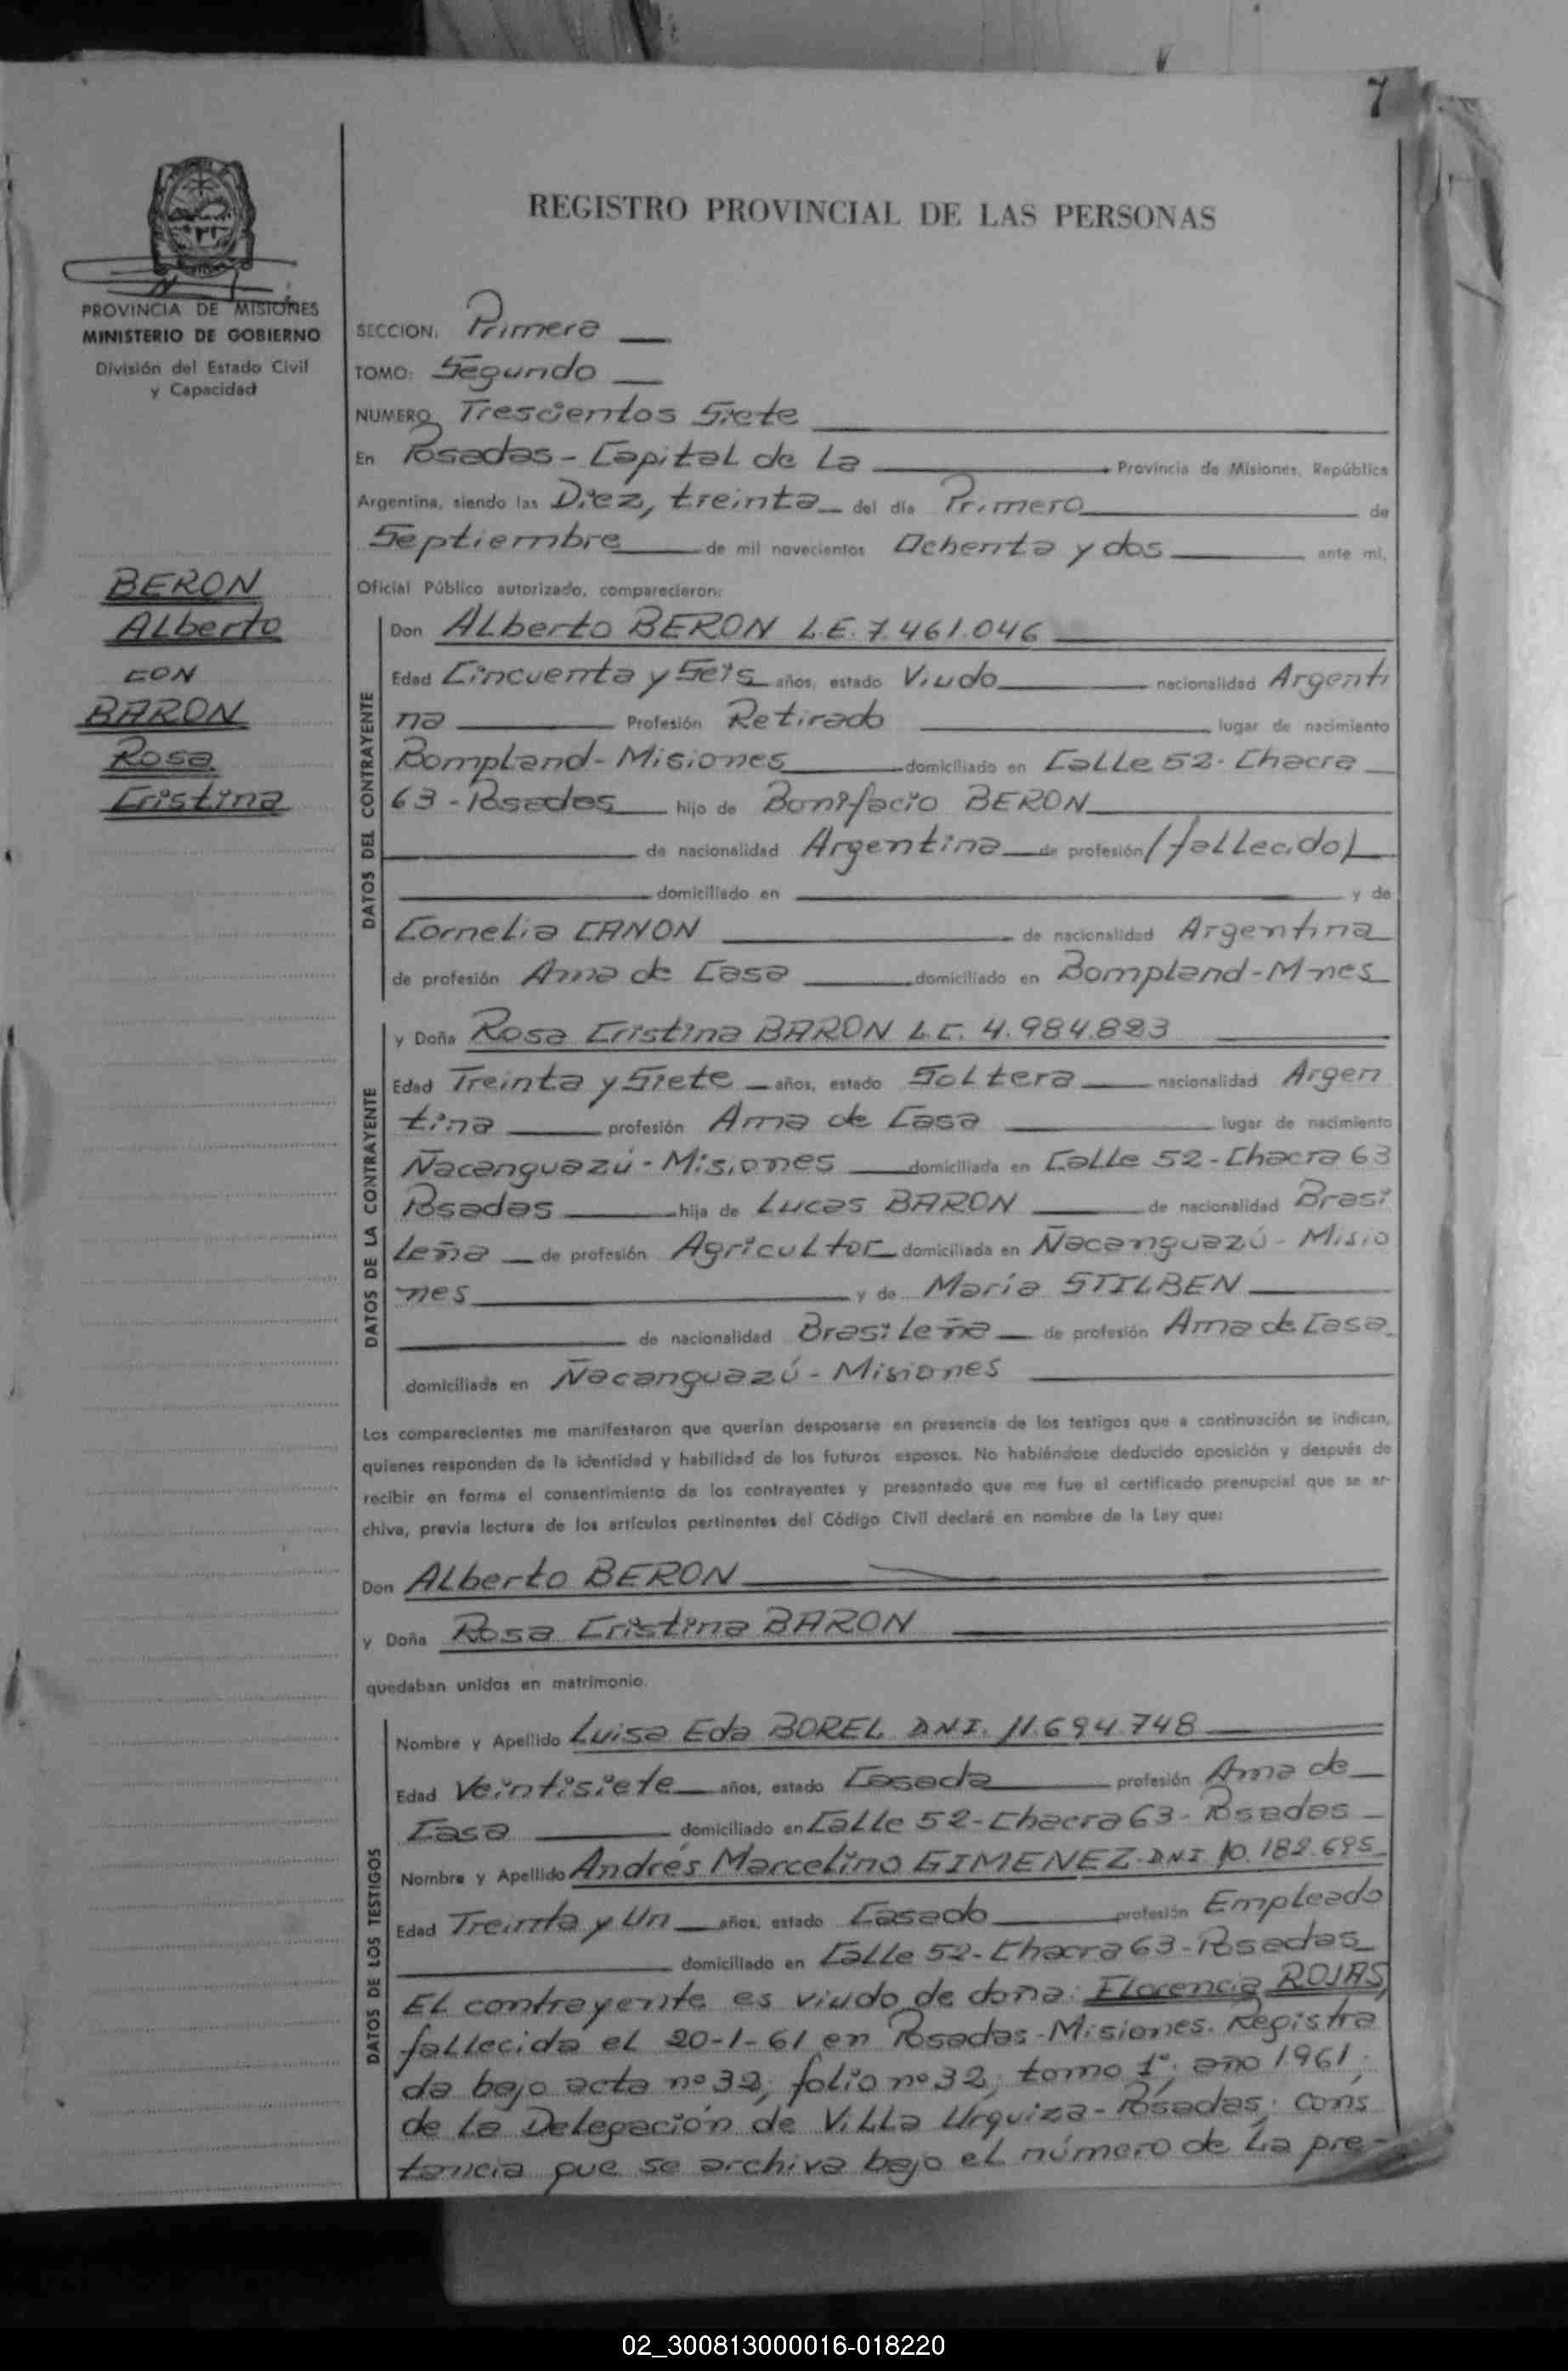 7
REGISTRO PROVINCIAL DE LAS PERSONAS
PROVINCIA DE MISIONES
MINISTERIO DE GOBIERNO
División del Estado Civil
y Capacidad
BERON
ALberto
CON
BARON
Rosa
Cristina
SECCION: Primera
TOMO: Segundo
NUMERO Trescientos Siete
En Posadas - Capital de La Provincia de Misiones, República
Argentina, siendo las Diez, treinta del día Primero de
Septiembre de mil novecientos Ochenta y dos ante mí,
Oficial Público autorizado, comparecieron:
DATOS DEL CONTRAYENTE
Don ALberto BERON L.E. 7.461.046
Edad Cincuenta y Seis años, estado Viudo nacionalidad Argenti
na Profesión Retirado lugar de nacimiento
BompLand - Misiones domiciliado en CaLLe 52 - Chacra
63 - Posadas hijo de Bonifacio BERON
de nacionalidad Argentina de profesión /fallecido/
domiciliado en y de
CorneLia CANON de nacionalidad Argentina
de profesión Ama de Casa domiciliado en BompLand - Mnes
DATOS DE LA CONTRAYENTE
y Doña Rosa Cristina BARON L.C. 4.984.823
Edad Treinta y Siete años, estado SoLtera nacionalidad Argen
tina profesión Ama de Casa lugar de nacimiento
Ñacanguazú - Misiones domiciliada en CaLLe 52 - Chacra 63
Posadas hija de Lucas BARON de nacionalidad Brasi
Leña de profesión AgricuLtor domiciliada en Ñacanguazú - Misio
nes y de María STILBEN
de nacionalidad BrasiLeña de profesión Ama de Casa
domiciliada en Ñacanguazú - Misiones
Los comparecientes me manifestaron que querían desposarse en presencia de los testigos que a continuación se indican,
quienes responden de la identidad y habilidad de los futuros esposos. No habiéndose deducido oposición y después de
recibir en forma el consentimiento de los contrayentes y presentado que me fue el certificado prenupcial que se ar-
chiva, previa lectura de los artículos pertinentes del Código Civil declaré en nombre de la Ley que:
Don ALberto BERON
y Doña Rosa Cristina BARON
quedaban unidos en matrimonio.
DATOS DE LOS TESTIGOS
Nombre y Apellido Luisa Eda BOREL D.N.I. 11.694.748
Edad Veintisiete años, estado Casada profesión Ama de
Casa domiciliado en CaLLe 52 - Chacra 63 - Posadas
Nombre y Apellido Andrés Marcelino GIMENEZ - DNI 10.182.695
Edad Treinta y Un años, estado Casado profesión Empleado
domiciliado en CaLLe 52 - Chacra 63 - Posadas
EL contrayente es viudo de doña: Florencia ROJAS,
falLecida eL 20-1-61 en Posadas - Misiones. Registra
da bajo acta nº 32, folio nº 32, tomo 1º, año 1961,
de La Delegación de ViLLa Urquiza - Posadas; cons
tancia que se archiva bajo eL número de La pre-
02_300813000016-018220